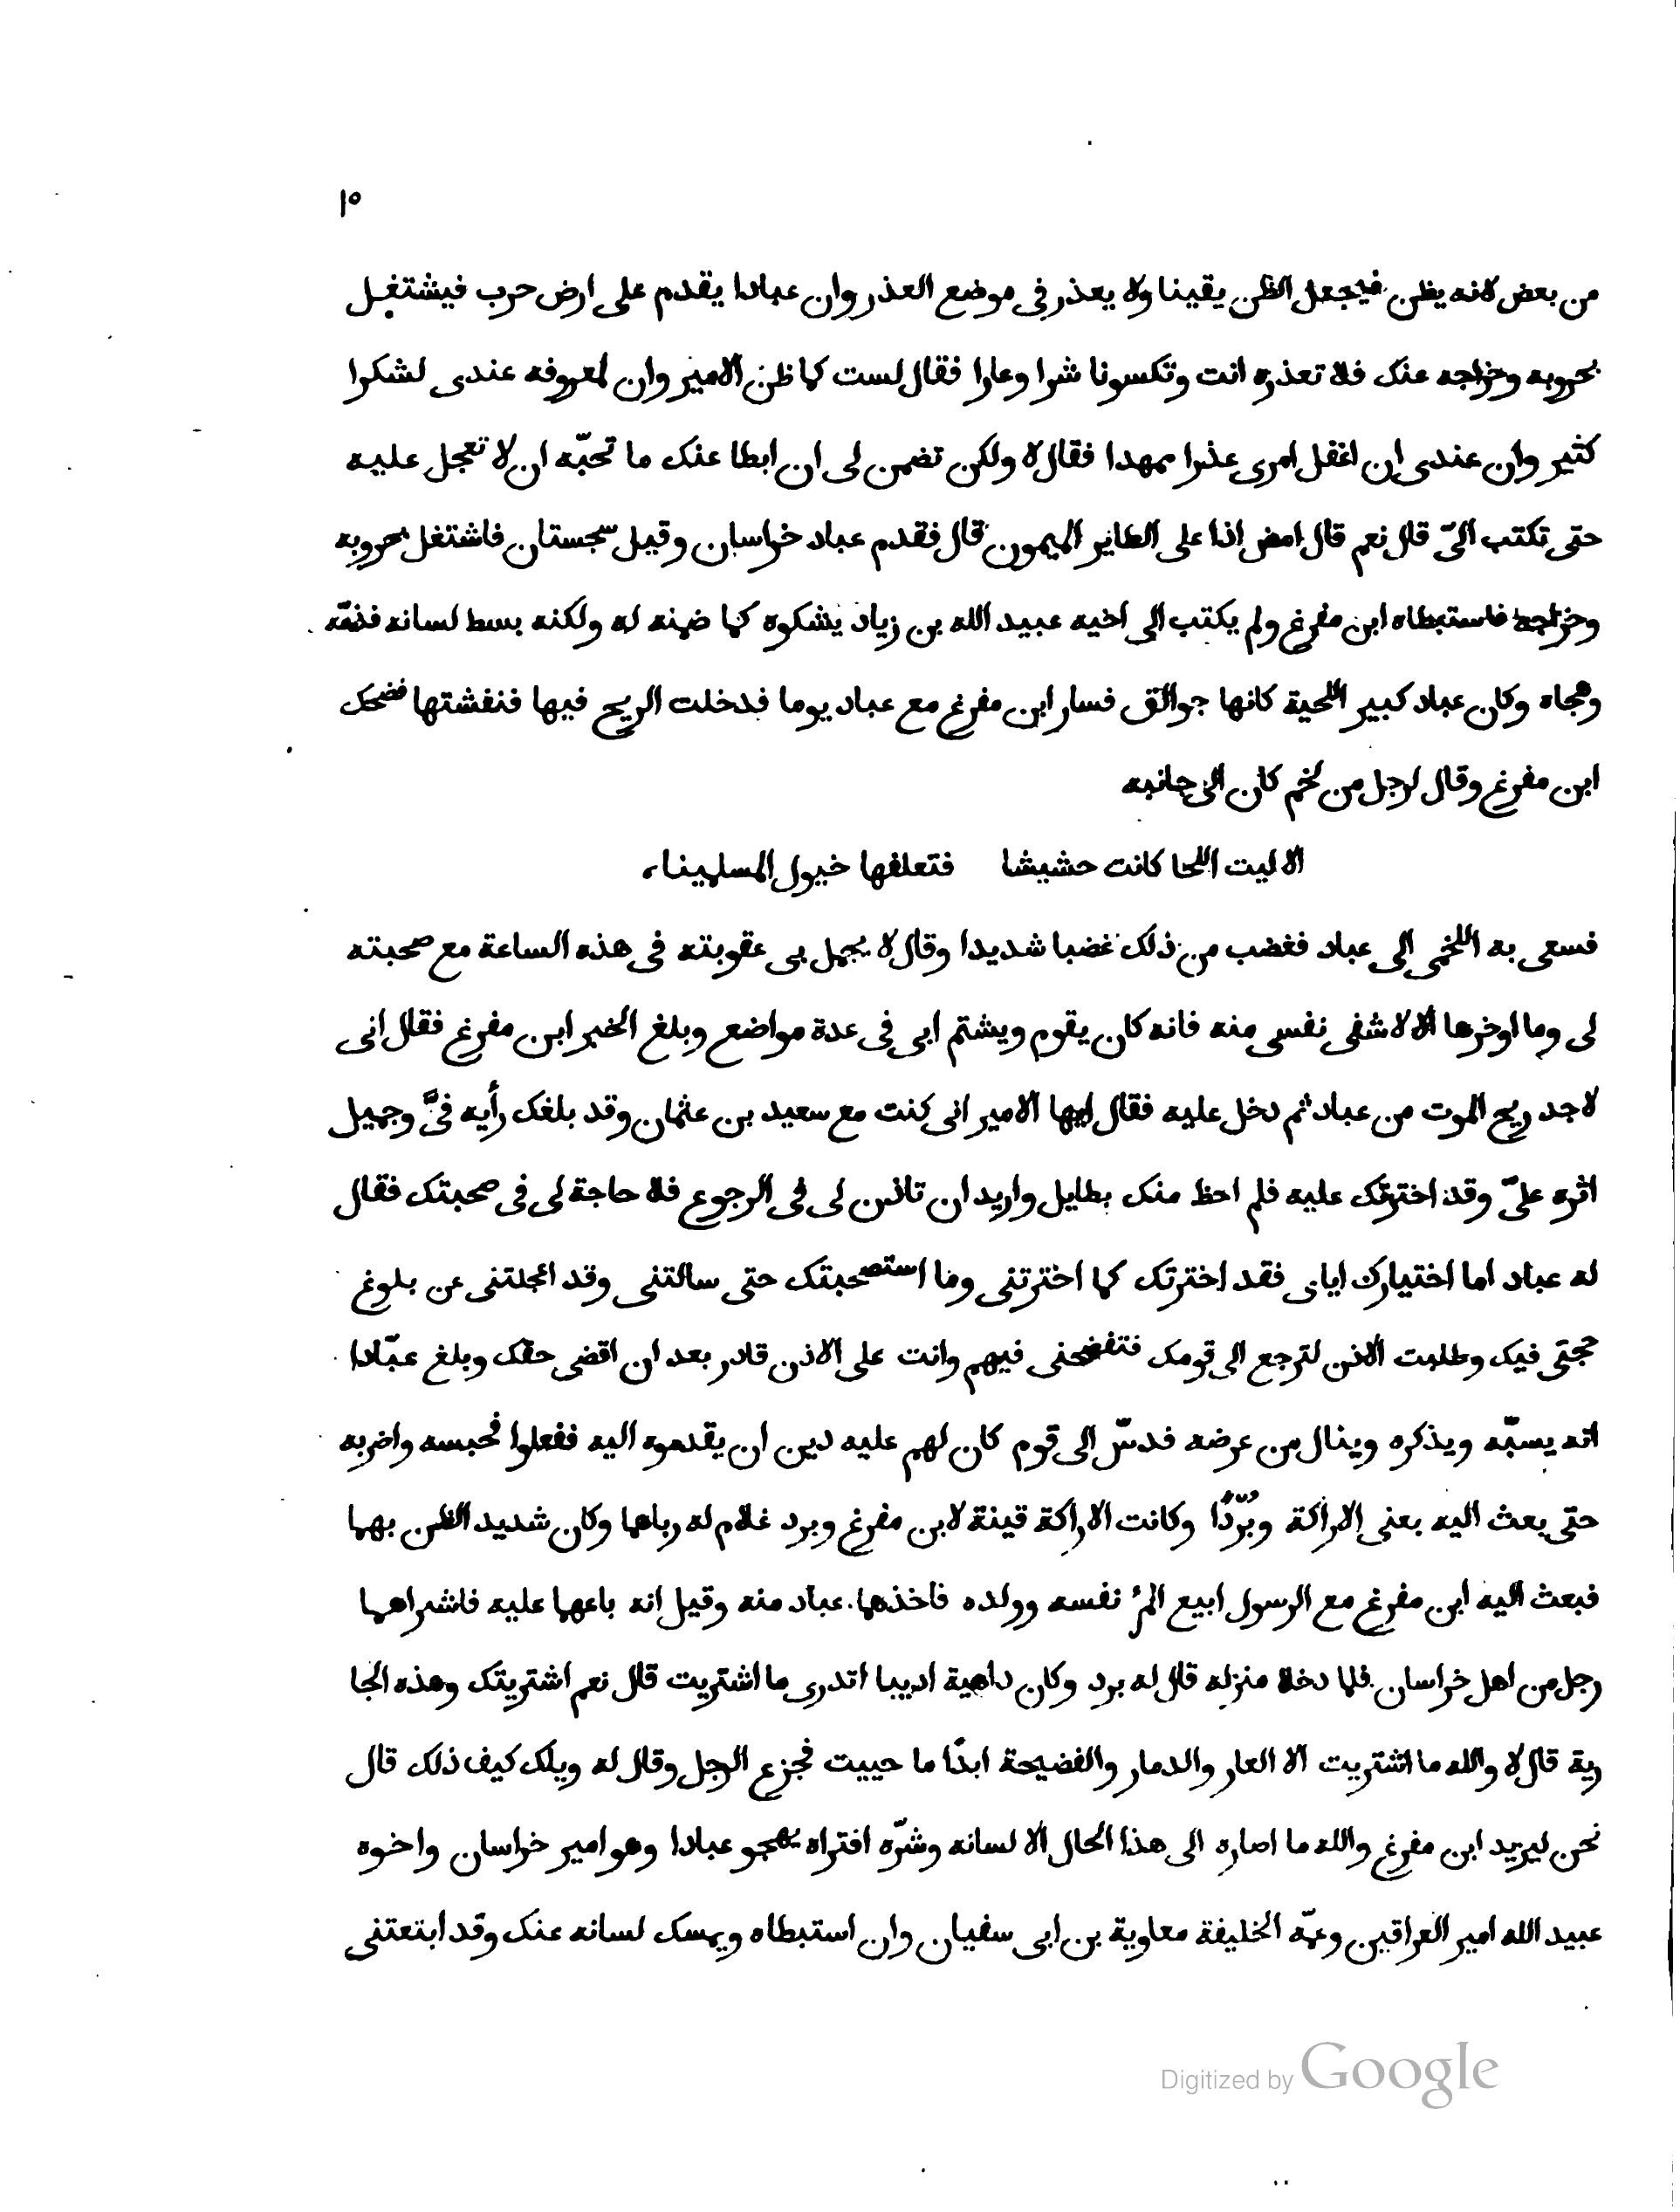 ١٥
من بعض لانه يظن فيجعل الظن يقينا ولا يعذر فى موضع العذر وان عبادا يقدم على ارض حرب فيشتغل
بحروبه وخراجه عنك فلا تعذره انت وتكسونا شرا وعارا فقال لست كما ظن الامير وان لمعروفه عندى لشكرا
كثير وان عندى ان اغفل امرى عذرا ممهدا فقال لا ولكن تضمن لى ان ابطا عنك ما تحبّه ان لا تعجل عليه
حتى تكتب الىّ قال نعم قال امض اذا على الطاير الميمون قال فقدم عباد خراسان وقيل سجستان فاشتغل بحروبه
وخراجه فاستبطاه ابن مفرغ ولم يكتب الى اخيه عبيد الله بن زياد يشكوه كما ضمنه له ولكنه بسط لسانه فذمّه
وهجاه وكان عباد كبير اللحية كانها جوالق فسار ابن مفرغ مع عباد يوما فدخلت الريح فيها فنفشتها فضحك
ابن مفرغ وقال لرجل من لخم كان الى جانبه
الا ليت اللحا كانت حشيشا فتعلفها خيول المسلمينا
فسعى به اللخمى الى عباد فغضب من ذلك غضبا شديدا وقال لا يجمل بى عقوبته فى هذه الساعة مع صحبته
لى وما اوخرها الا لاشفى نفسى منه فانه كان يقوم ويشتم ابى فى عدة مواضع وبلغ الخبر ابن مفرغ فقال انى
لاجد ريح الموت من عباد ثم دخل عليه فقال ايها الامير انى كنت مع سعيد بن عثمان وقد بلغك رأيه فىَّ وجميل
اثره علىّ وقد اخترتك عليه فلم احظ منك بطايل واريد ان تاذن لى فى الرجوع فلا حاجة لى فى صحبتك فقال
له عباد اما اختيارك اياى فقد اخترتك كما اخترتنى وما استصحبتك حتى سالتنى وقد اعجلتنى عن بلوغ
حجتى فيك وطلبت الاذن لترجع الى قومك فتفضحنى فيهم وانت على الاذن قادر بعد ان اقضى حقك وبلغ عبّادا
انه يسبّه ويذكره وينال من عرضه فدسّ الى قوم كان لهم عليه دين ان يقدموه اليه ففعلوا فحبسه واضر به
حتى بعث اليه بعنى الاراكة وبُرْدًا وكانت الاراكة قينة لابن مفرغ وبرد غلام له رباهما وكان شديد الظن بهما
فبعث اليه ابن مفرغ مع الرسول ابيع المرُ نفسه وولده فاخذهما عباد منه وقيل انه باعهما عليه فاشراهما
رجل من اهل خراسان فلما دخلا منزله قال له برد وكان داهية اديبا اتدرى ما اشتريت قال نعم اشتريتك وهذه الجا
رية قال لا والله ما اشتريت الا العار والدمار والفضيحة ابدًا ما حييت فجزع الرجل وقال له ويلك كيف ذلك قال
نحن ليزيد ابن مفرغ والله ما اصاره الى هذا الحال الا لسانه وشرّه افتراه يهجو عبادا وهو امير خراسان واخوه
عبيد الله امير العراقين وعمّه الخليفة معاوية بن ابى سفيان وان استبطاه ويمسك لسانه عنك وقد ابتعتنى
Digitized by Google